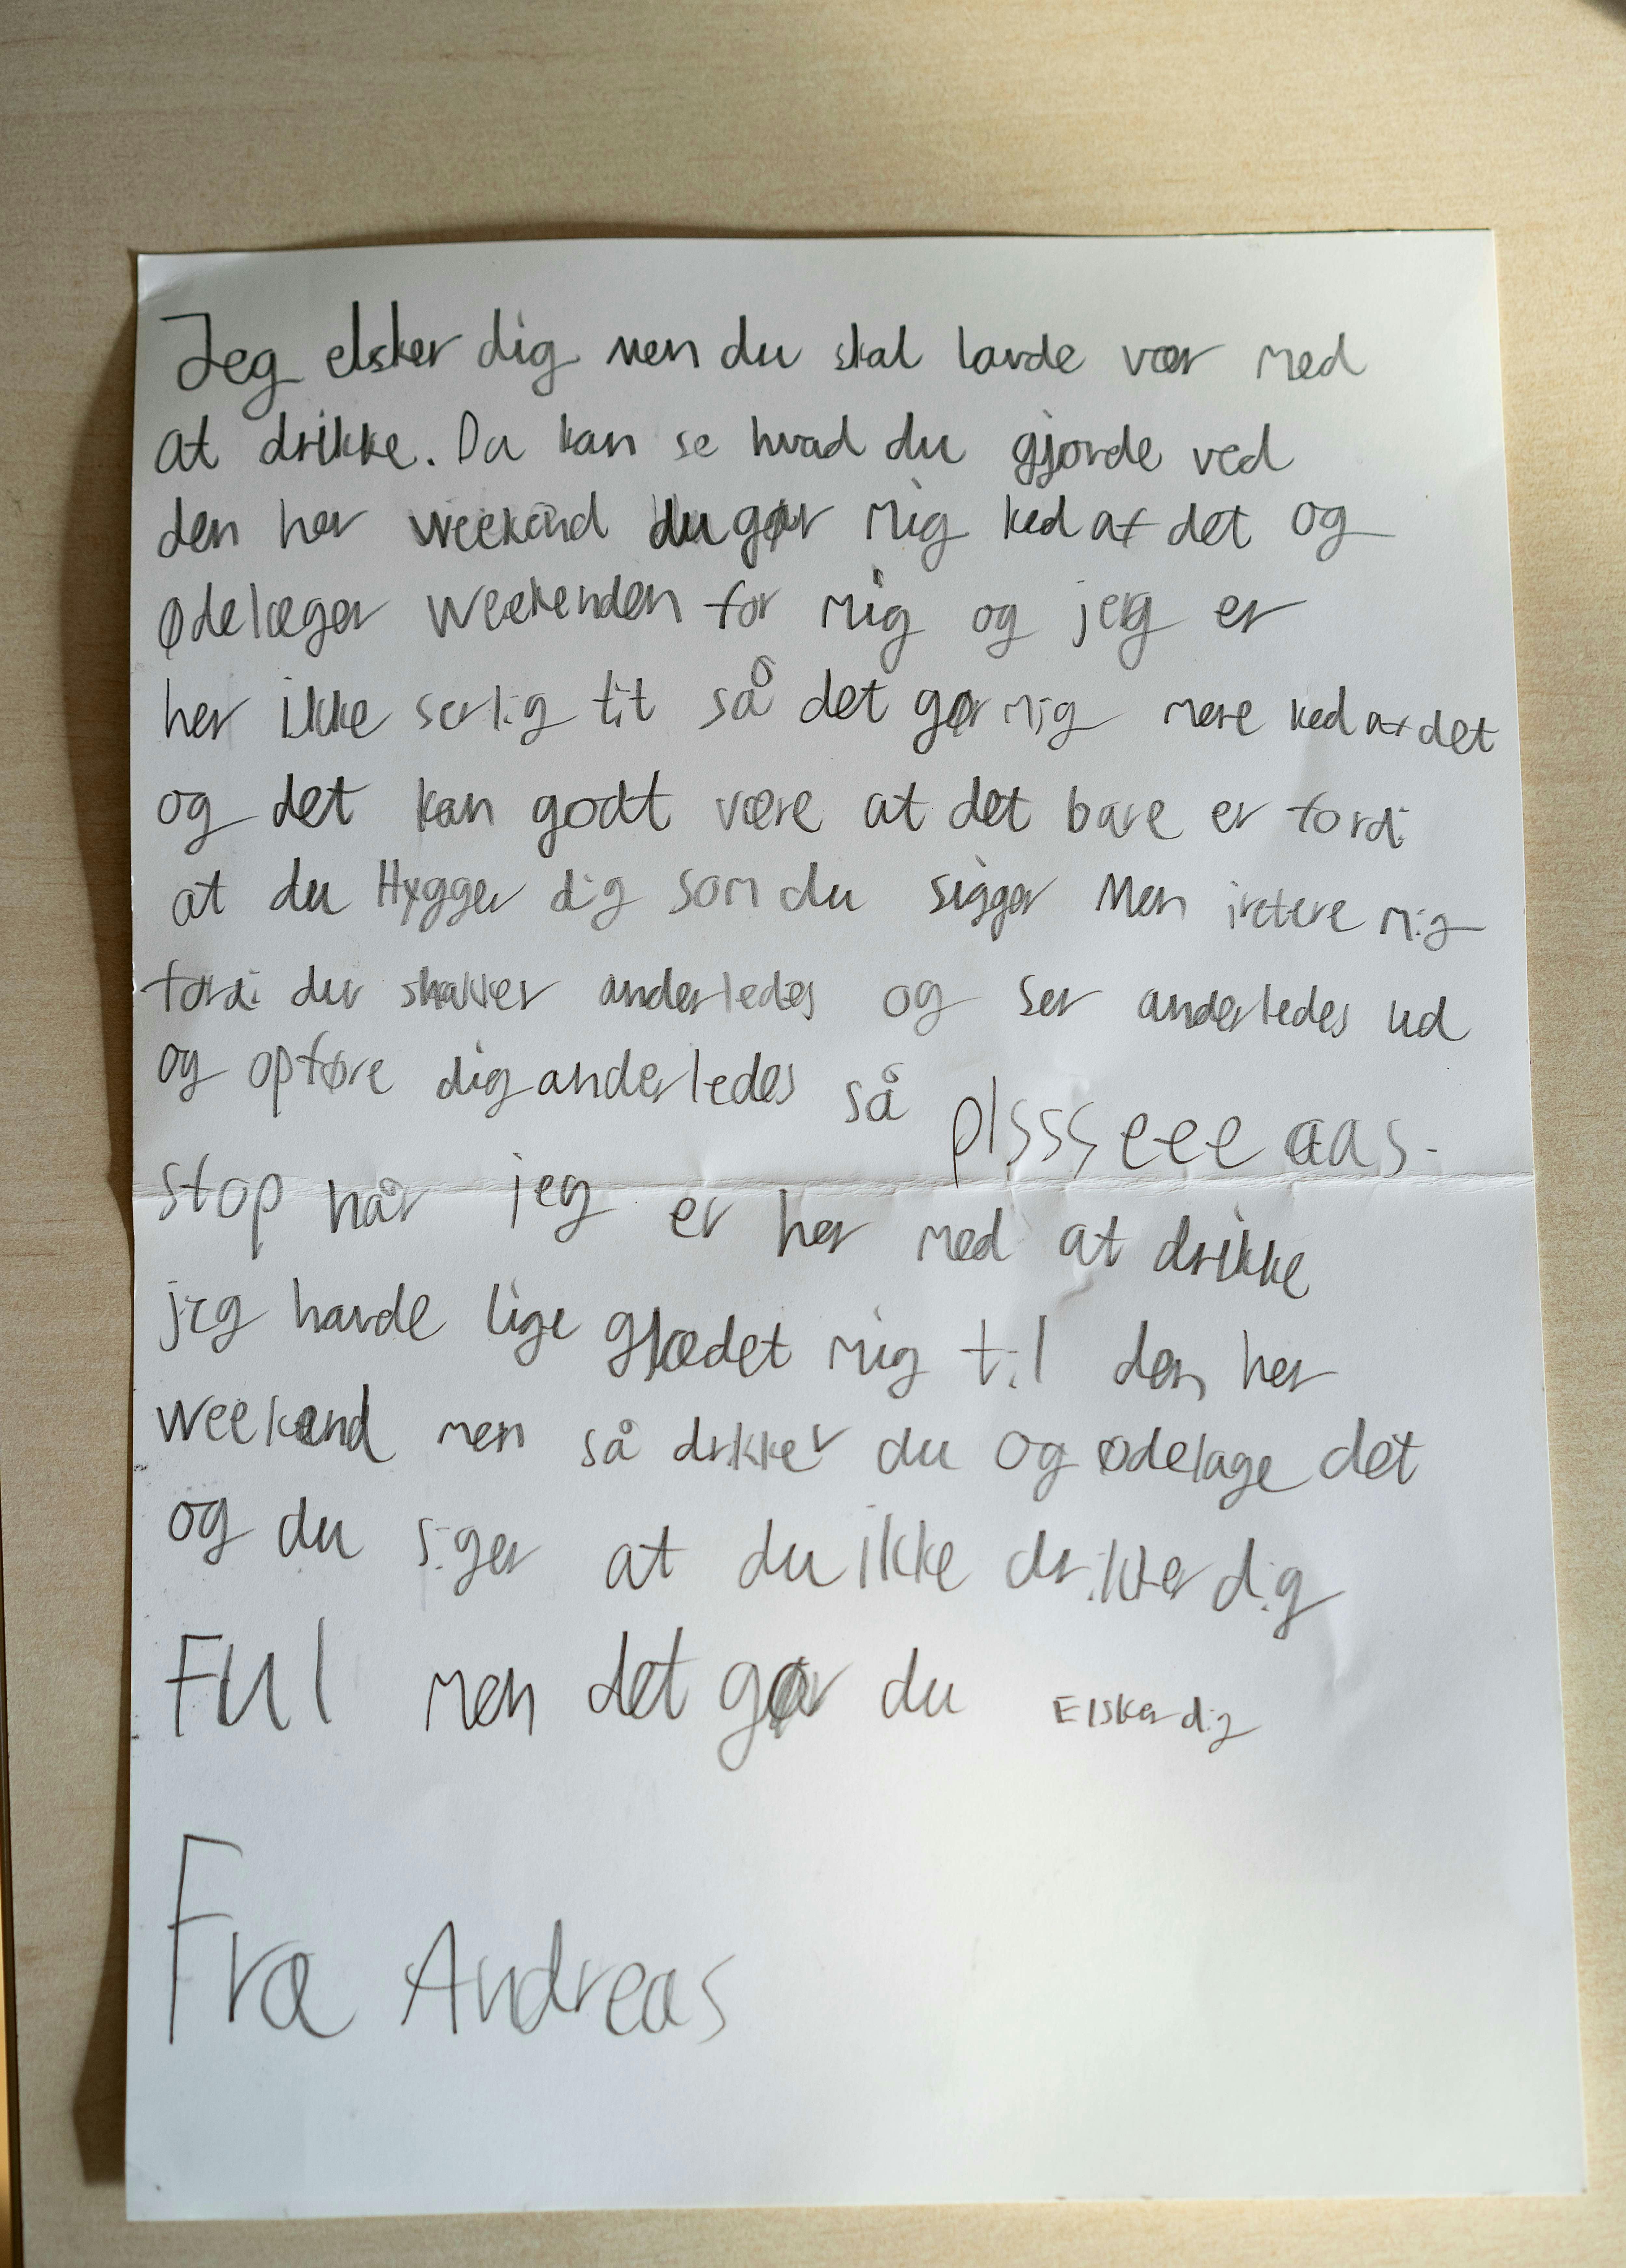 Jeg elsker dig men du skal lavde vær med
at drikke. Du kan se hvad du gjorde ved
den her weekend du gør mig ked af det og
ødelæger weekenden for mig og jeg er
her ikke serlig tit så det gør mig mere ked af det
og det kan godt være at det bare er fordi
at du Hygger dig som du sigger Men iretere mig
fordi du snakker anderledes og ser anderledes ud
og opføre dig anderledes så plsssseeeaas-
stop når jeg er her med at drikke
jeg havde lige glædet mig til den her
weekend men så drikker du og ødelage det
og du siger at du ikke drikker dig
FUl men det gør du Elsker dig
Fra Andreas